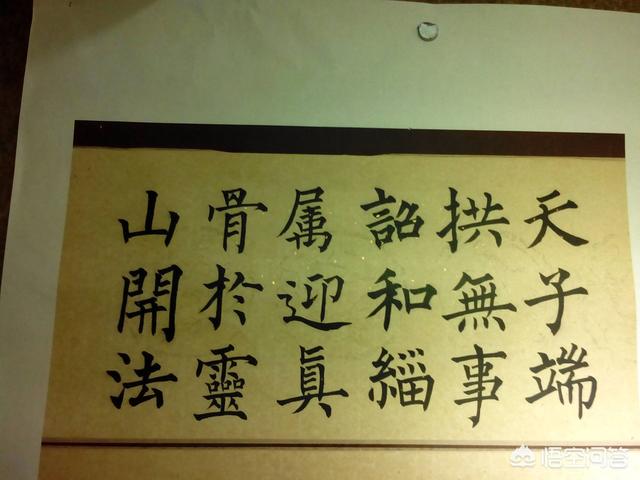 天子端
拱無事
詔和緇
属迎真
骨於靈
山開法
悟空问答